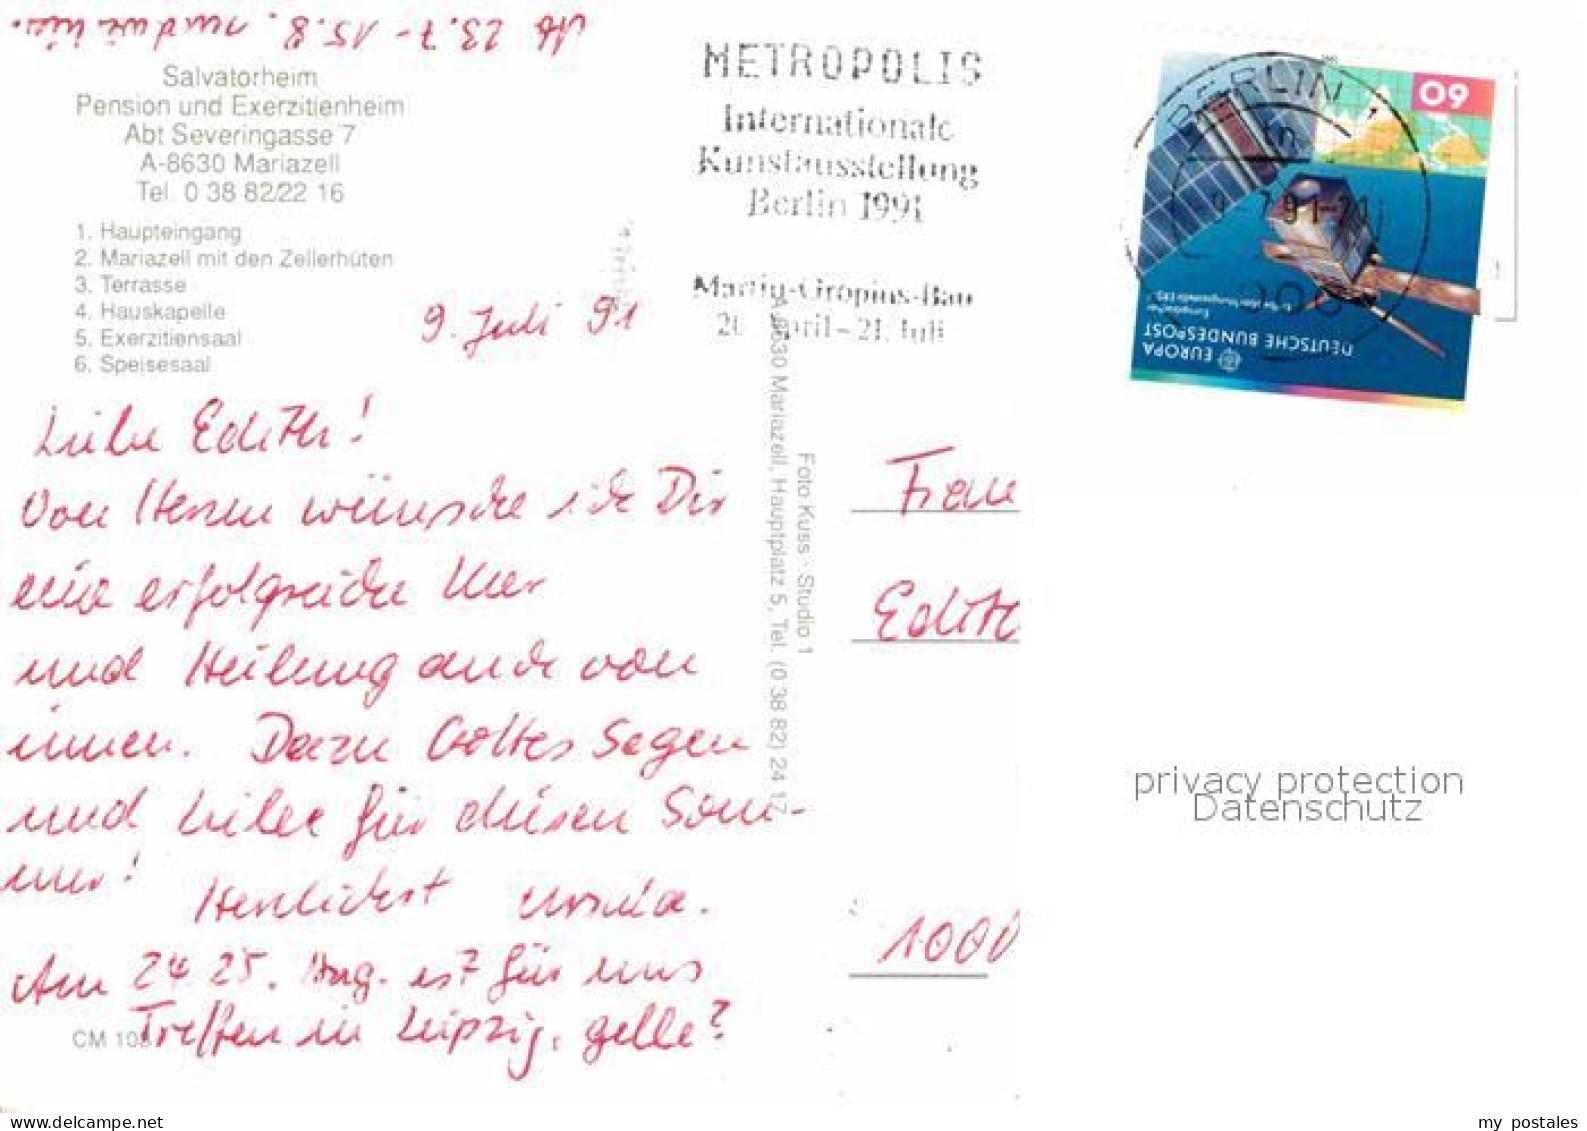 Ab 23.7 - 15.8. sind wir hier.
Salvatorheim
Pension und Exerzitienheim
Abt Severingasse 7
A-8630 Mariazell
Tel. 0 38 82/22 16
1. Haupteingang
2. Mariazell mit den Zellerhüten
3. Terrasse
4. Hauskapelle
5. Exerzitiensaal
6. Speisesaal
9. Juli 91
Liebe Edith!
Von Herzen wünsche ich Dir
eine erfolgreiche Kur
und Heilung auch von
innen. Dazu Gottes Segen
und Liebe für diesen Som-
mer!
Herzlichst Ursula.
Am 24 25. Aug. ist für uns
Treffen in Leipzig, gelle?
CM 10
Foto Kuss · Studio 1
A-8630 Mariazell, Hauptplatz 5, Tel. (0 38 82) 24 17
METROPOLIS
Internationale
Kunstausstellung
Berlin 1991
Martin-Gropius-Bau
20. April - 21. Juli
BERLIN
91-21
60
EUROPA
DEUTSCHE BUNDESPOST
Frau
Edith
1000
privacy protection
Datenschutz
www.delcampe.net
my_postales